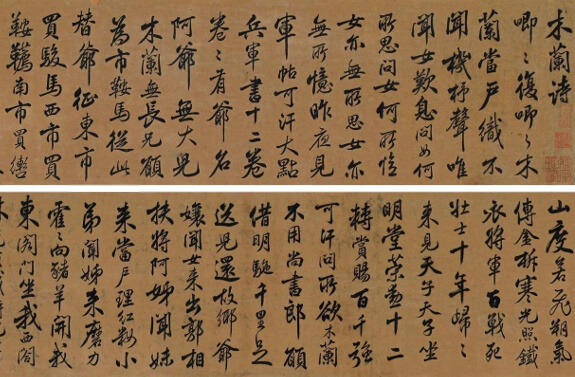 木蘭詩
唧〻復唧〻木
蘭當户織不
聞機杼聲唯
聞女歎息問女何
所思問女何所憶
女亦無所思女亦
無所憶昨夜見
軍帖可汗大點
兵軍書十二卷
卷〻有爺名
阿爺無大兒
木蘭無長兄願
為市鞍馬從此
替爺征東市
買駿馬西市買
鞍韉南市買轡
山度若飛朔氣
傳金柝寒光照鐵
衣將軍百戰死
壯士十年歸〻
來見天子天子坐
明堂策勳十二
轉賞賜百千強
可汗問所欲木蘭
不用尚書郎願
借明駝千里足
送兒還故鄉爺
孃聞女來出郭相
扶將阿姊聞妹
來當户理紅妝小
弟聞姊來磨刀
霍〻向豬羊開我
東閣門坐我西閣